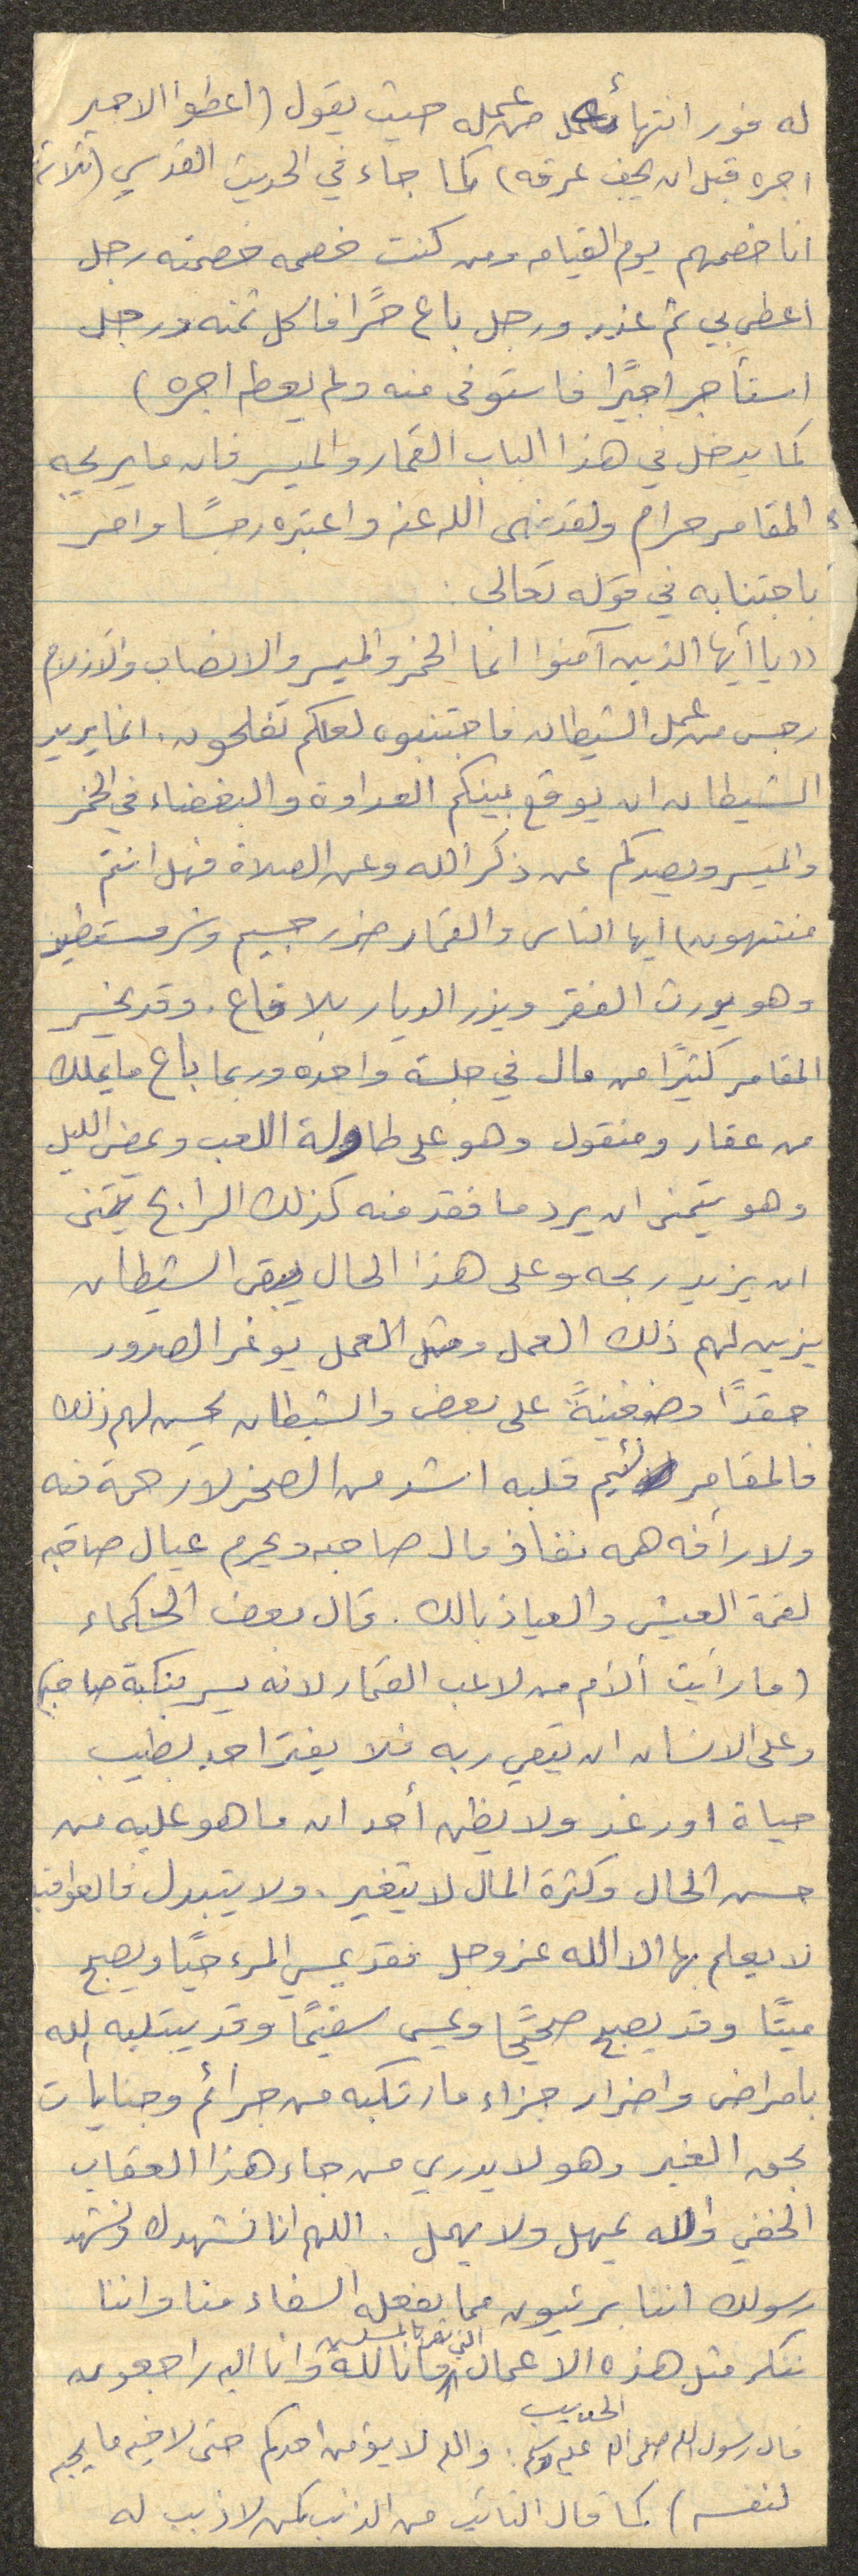 له فور انتهائه من عمله حيث يقول (اعطوا الاجير
اجره قبل ان يجف عرقه) كما جاء في الحديث القدسي (ثلاثة
انا خصمهم يوم القيامه ومن كنت خصمه خصمته رجل
اعطى بي ثم غدر ورجل باع حرًا فاكل ثمنه ورجل
استأجر اجيرًا فاستوفى منه ولم يعطه اجره)
كما يدخل في هذا الباب القمار والميسر فان ما يربحه
المقامر حرام ولقد نهى الله عنه واعتبره رجسًا وامر
باجتنابه في قوله تعالى :
((يا أيها الذين آمنوا انما الخمر والميسر والانصاب والازلام
رجس من عمل الشيطان فاجتنبوه لعلكم تفلحون. انما يريد
الشيطان ان يوقع بينكم العداوة والبغضاء في الخمر
والميسر ويصدكم عن ذكر الله وعن الصلاة فهل انتم
منتهون) ايها الناس والقمار ضرر جسيم وشر مستطير
وهو يورث الفقر ويذر الديار بلاقاع. وقد يخسر
المقامر كثيرًا من مال في جلسة واحده وربما باع ما يملك
من عقار ومنقول وهو على طاولة اللعب ويمضي الليل
وهو يتمنى ان يرد ما فقد منه كذلك الرابح يتمنى
ان يزيد ربحه وعلى هذا الحال يبقى الشيطان
يزين لهم ذلك العمل ومثل العمل يوغر الصدور
حقدًا وضغينةً على بعض والشيطان يحسن لهم ذلك
فالمقامر لئيم قلبه اشد من الصخر لا رحمة فيه
ولا رأفه همه نفاذ مال صاحبه ويحرم عيال صاحبه
لقمة العيش والعياذ بالله. قال بعض الحكماء
(ما رأيت ألأم من لاعب القمار لانه يسر بنكبة صاحبه)
وعلى الانسان ان يتقي ربه فلا يغتر احد بطيب
حياة او رغد ولا يظن أحد ان ما هو عليه من
حسن الحال وكثرة المال لا يتغير. ولا يتبدل فالعواقب
لا يعلم بها الا الله عز وجل فقد يمسي المرء حيًا ويصبح
ميتًا وقد يصبح صحيحًا ويمسي سقيمًا وقد يبتليه الله
بامراض واضرار جزاء ما ارتكبه من جرائم وجنايات
بحق الغير وهو لا يدري من جاء هذا العقاب
الخفي والله يمهل ولا يهمل. اللهم انا نشهدك ونشهد
رسولك اننا بريئون مما يفعله السفهاء منا واننا
ننكر مثل هذه الاعمال التي تضر بالمسلمين وانا لله وانا اليه راجعون
الحديب
قال رسول الله صلى الله عليه وسلم: والله لا يؤمن احدكم حتى لاخيه ما يحبه
لنفسه) كما قال التائب من الذنب كمن لا ذنب له